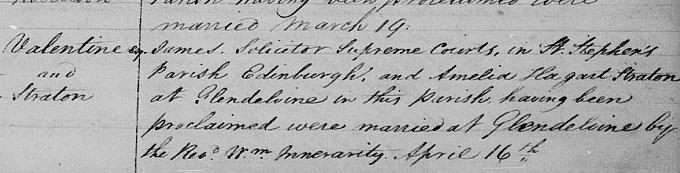 Parish having been proclaimed were
married March 19.
Valentine Esq. James, Solicitor Supreme Courts, in St. Stephen's
and Parish Edinburgh, and Amelia Hagart Straton
Straton at Glendelvine in this Parish, having been
proclaimed were married at Glendelvine by
the Revd. Wm. Innerarity. April 16th